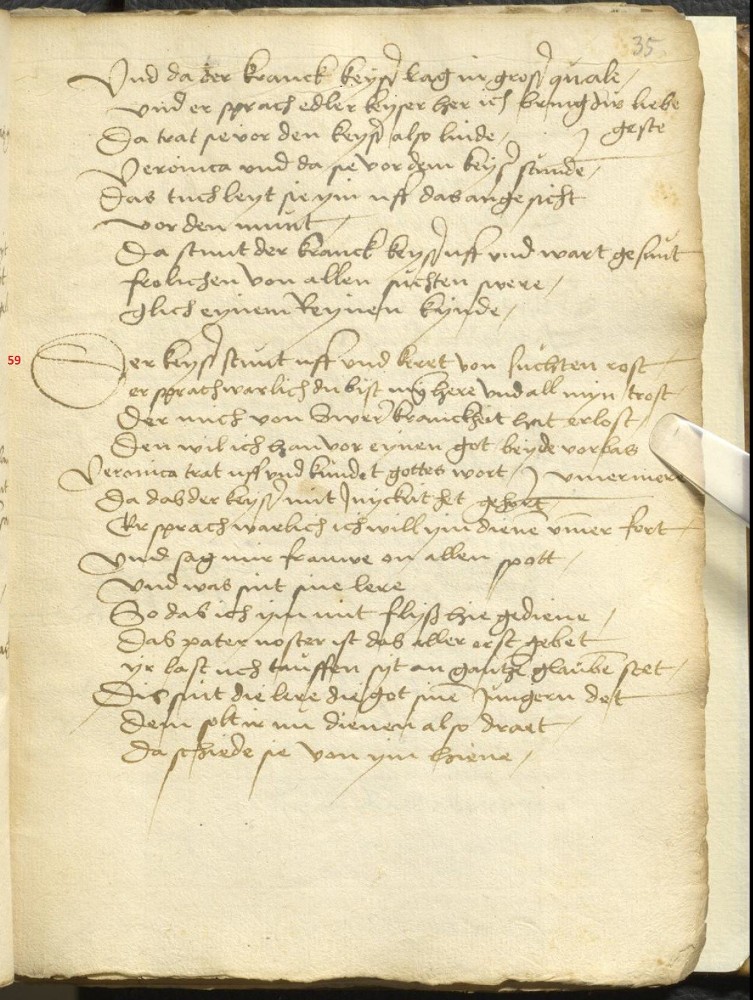 35
Vnd da der kranck keyser lag in grosser quale /
vnd er sprach edler keyser her ich bring dir liebe
geste
Da trat sie vor den keyser also linde /
Veronica vnd da sie vor dem keyser stunde /
Das tuch leyt sie ym uff das angesicht
vor den munt /
Da stunt der kranck keyser uff vnd wart gesunt
frolichen von allen suchten swere /
glich eynem Reynen kynde /
59
Der keyser stunt uff vnd keret von suchten rost
er sprach warlich du bist myn here vnd all myn trost
Der mich von swerer kranckheit hat erlost
Den wil ich han vor eynen got beyde vorbas
vmermere
Veronica trat uff vnd kundet gottes wort /
Da das der keyser mit hett gehort
Er sprach warlich ich will ym diene vmer fort
Vnd sag mir frauwe on allen spott /
Vnd was sint sine lere
So das ich ym mit flyß hie gediene /
Das pater noster ist das aller erst gebet
yr last uch tauffen syt an gantzem glaube stet /
Dis sint die lere die got sinen Jungern det
Dem solt ir nu dienen also draet
Da schiede sie von ym hiene /